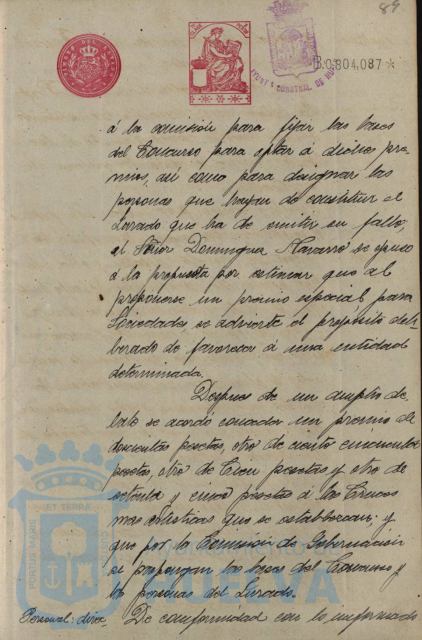 89
B.0.804.087 *
á la comisión para fijar las bases
del Concurso para optar á dichos pre-
mios, asi como para designar las
personas que hayan de constituir el
Jurado que ha de emitir su fallo,
el Señor Dominguez Navarro se opuso
á la propuesta por estimar que al
proponerse un premio especial para
Sociedades se advierte el propósito deli-
berado de favorecer á una entidad
determinada.
Despues de un amplio de-
bate se acordó conceder un premio de
doscientas pesetas, otro de ciento cincuenta
pesetas otro de Cien pesetas y otro de
setenta y cinco pesetas á las Cruces
mas artisticas que se establezcan; y
que por la Comisión de Gobernación
se propongan las bases del Concurso y
las personas del Jurado.
Personal: direc-
De conformidad con lo informado
PORTUS MARIS
ET TERRAE
HUELVA